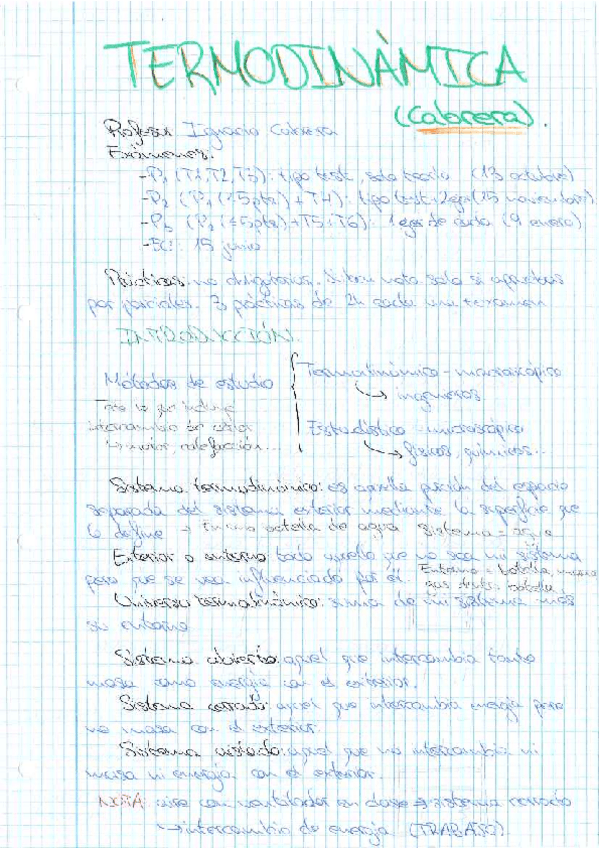 TERMODINÀMICA
(Cabrera).
Profesor: Ignacio Cabrera
Exámenes:
-P1 (T1,T2,T3): tipo test, solo teoría (13 octubre)
-P2 (P1 (<5pts) + T4): tipo test+2ejer (15 noviembre)
-P3 (P2 (<5pts) + T5+T6): 1 ejer de cada (9 enero)
15 junio
Prácticas: no obligatorias. nota solo si apruebas
por parciales. 3 prácticas de 2h cada una + examen
INTRODUCCIÓN.
Métodos de estudio
Termodinámico - macroscópico
ingenieros
Todo lo que incluye
intercambio de calor
motor, calefacción...
Estadístico - microscópico
físicos, químicos...
Sistema termodinámico: es aquella porción del espacio
separada del sistema exterior mediante la superficie que
lo define botella de agua sistema = agua
Exterior o entorno todo aquello que no sea mi sistema
pero que se vea influenciado por él. Entorno = botella,
botella
Universo termodinámico: suma de mi sistema más
su entorno
Sistema abierto: aquel que intercambia tanto
masa como energía con el exterior.
Sistema cerrado: aquel que intercambia energía pero
no masa con el exterior.
Sistema aislado: aquel que no intercambia ni
masa ni energía con el exterior.
NOTA: aire con ventilador en clase → sistema cerrado
→ intercambio de energía (TRABAJO)